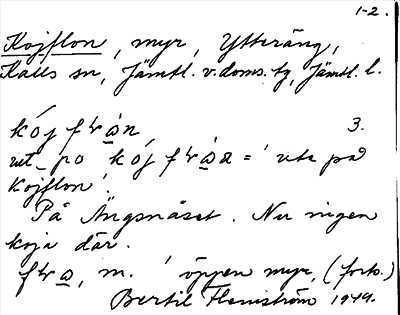 1-2.
Kojflon, myr, Ytteräng,
Kalls sn, Jämtl. v. doms. tg, Jämtl. l.
3.
ut po = 'ute på
Kojflon'.
På Ängsnäset. Nu ingen
koja där.
m. 'öppen myr, (forts.)
Bertil Flemström 1949.